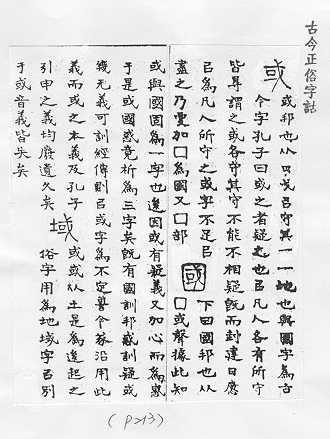 古今正俗字詁
或
或邦也从口戈㠯守其一一地也與國字為古
今字孔子曰或之者疑之也㠯凡人各有所守
皆㝵謂之或各守其守不能不相疑旣而封建日
㠯為凡人所守之或字不足㠯
盡之乃㪅加囗為國又囗部
國
下曰國邦也从
囗或聲據此知
或與國固為一字也後因或有疑義又加心而為惑
于是或國惑竟析為三字矣旣有國訓邦惑訓疑或
幾无義可訓經傳則㠯或字為不定沿用此
義而或之本義及孔子
引申之義均廢遺久矣
域
或或从土是為後起之
俗字用為地域字㠯別
于或音義皆失矣
(P213)